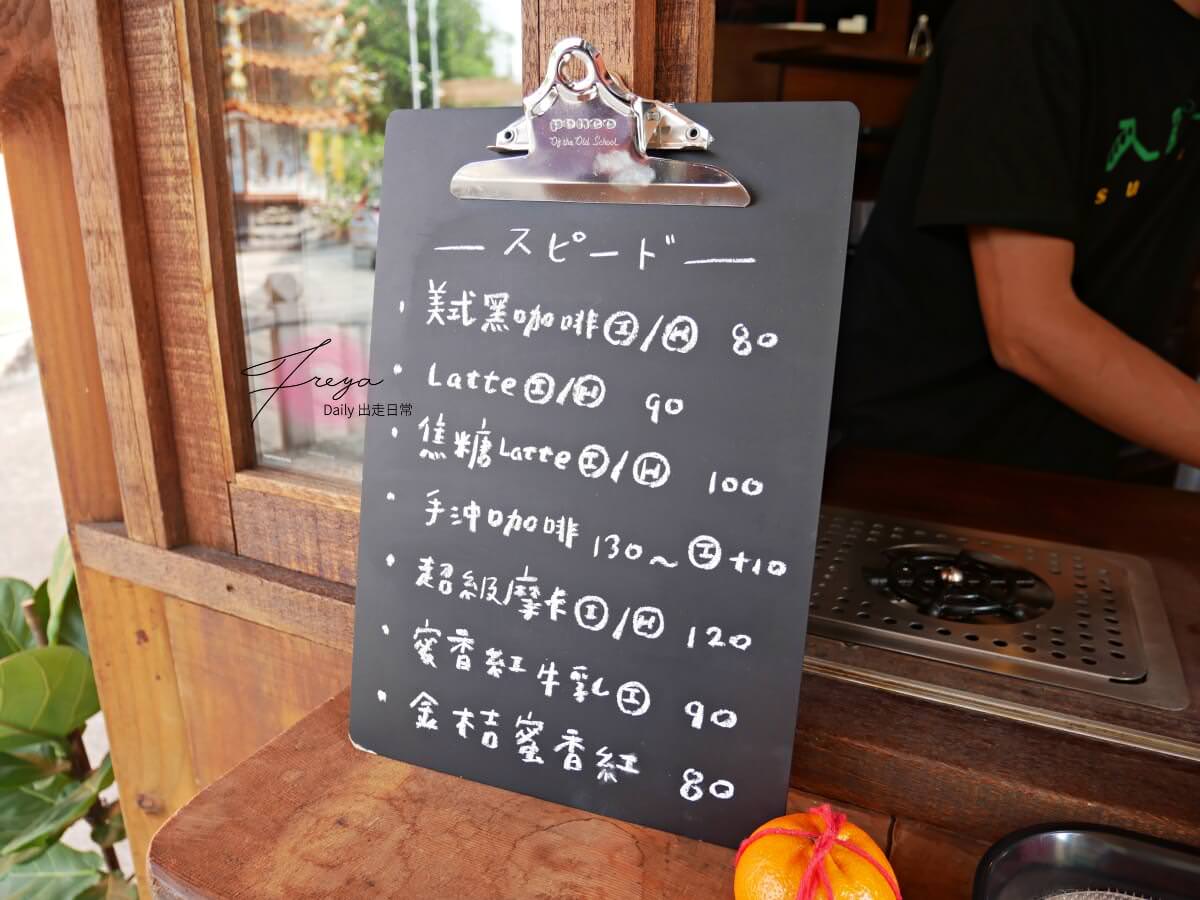 penco
Of the Old School
— スピード —
・美式黑咖啡Ⓘ/Ⓗ 80
・Latte Ⓘ/Ⓗ 90
・焦糖Latte Ⓘ/Ⓗ 100
・手沖咖啡 130~ Ⓘ+10
・超級摩卡Ⓘ/Ⓗ 120
・蜜香紅牛乳Ⓘ 90
・金桔蜜香紅 80
Freya
Daily 出走日常
SU